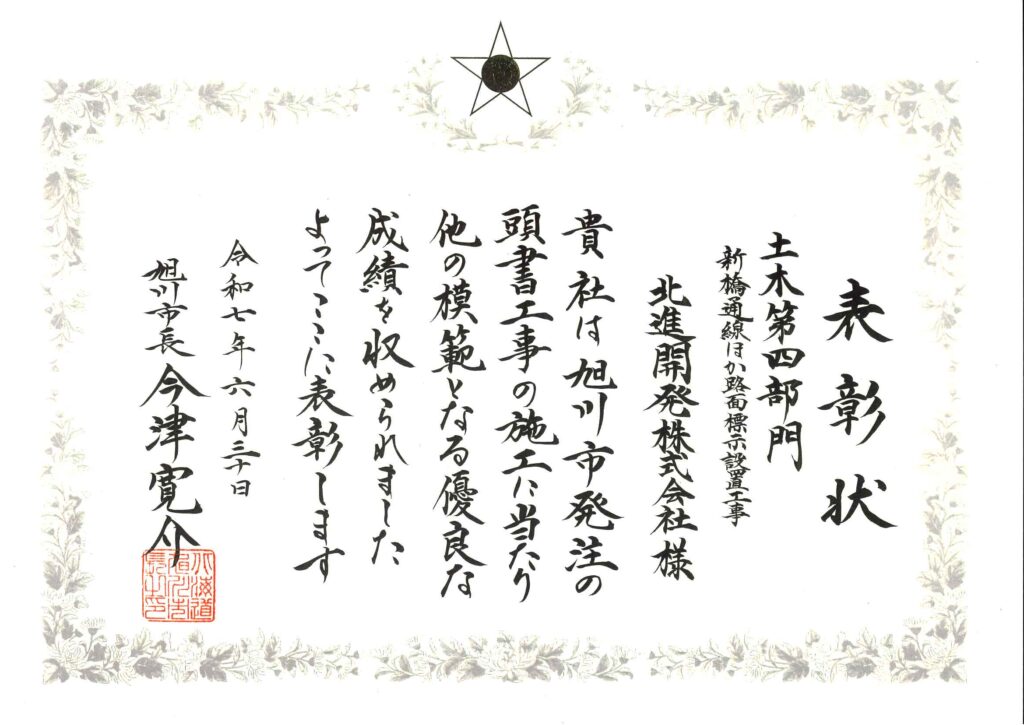 表彰状
土木第四部門
新橋通線ほか路面標示設置工事
北進開発株式会社様
貴社は旭川市発注の
頭書工事の施工に当たり
他の模範となる優良な
成績を収められました
よってここに表彰します
令和七年六月三十日
旭川市長 今津寛介
北海道旭川市長之印